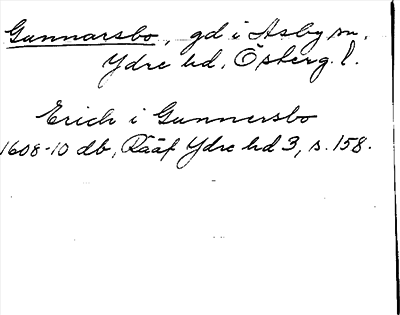 Gunnarsbo, gd i Asby sn,
Ydre hd, Österg. l.
Erich i Gunnersbo
1608-10 db, Rääf Ydre hd 3, s. 158.